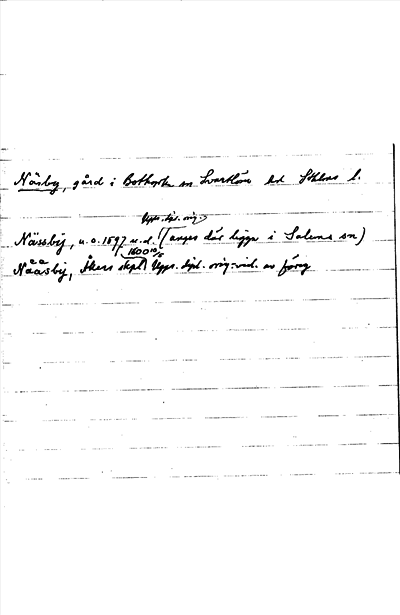 Näsby, gård i Botkyrka sn Svartlösa hd Sthlms l.
Upps. dpl. orig.
Nässbij, u.o. 1597 u.d. (anges där ligga i Salems sn)
1600 10/5
Nääsbij, Åkers skpl. Upps. dpl. orig. vid. av föreg